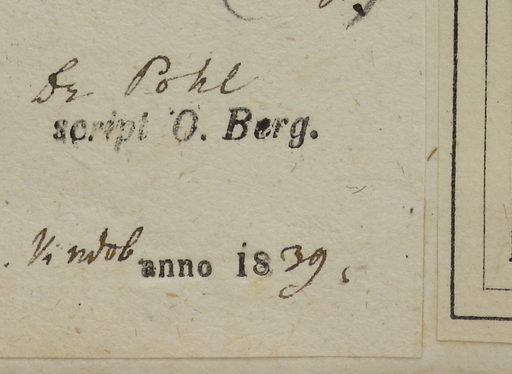 Dr Pohl
script O. Berg.
Vindob anno 1839.